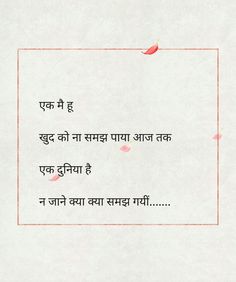 एक मै हू
खुद को ना समझ पाया आज तक
एक दुनिया है
न जाने क्या क्या समझ गयीं.......